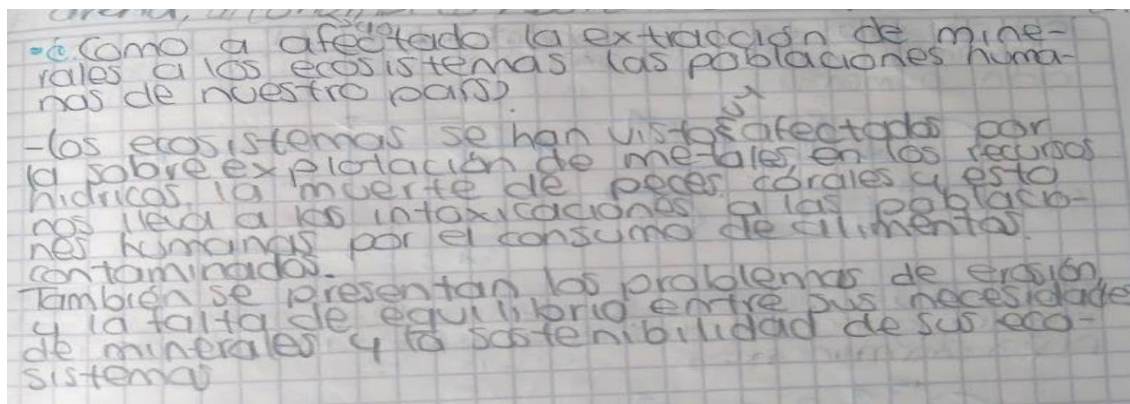 arena,
-¿Como a afectado la extracción de mine-
rales a los ecosistemas las poblaciones huma-
nas de nuestro país?
-los ecosistemas se han vistos afectados por
la sobre explotación de metales en los recursos
hidricos, la muerte de peces, córales y esto
nos lleva a las intoxicaciones a las poblacio-
nes humanas por el consumo de alimentos
contaminados.
También se presentan los problemas de erosión
y la falta de equilibrio entre sus necesidades
de minerales y la sostenibilidad de sus eco-
sistemas